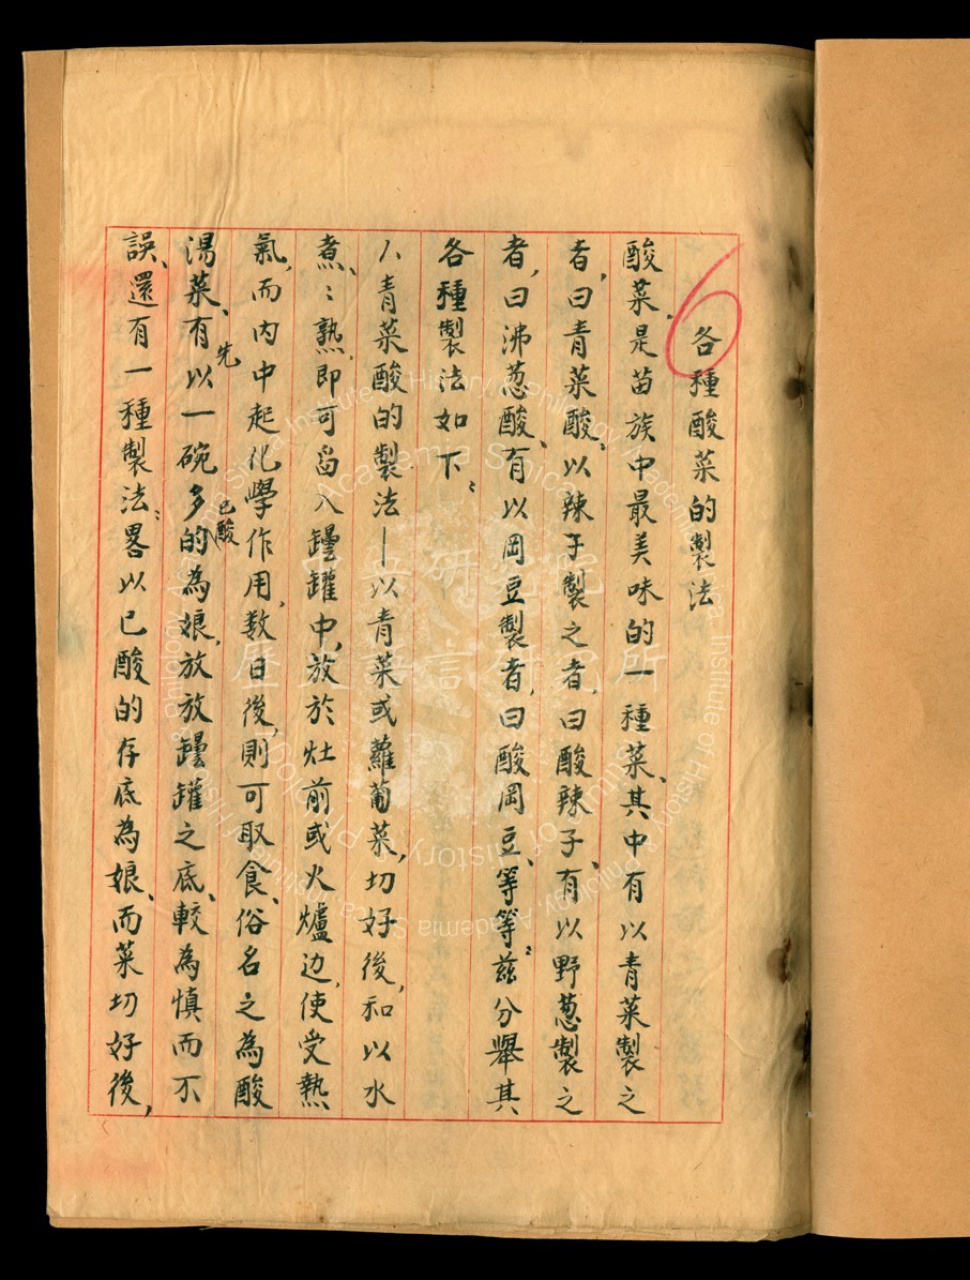 6
各種酸菜的製法
酸菜,是苗族中最美味的一種菜、其中有以青菜製之
者,曰青菜酸、以辣子製之者,曰酸辣子、有以野葱製之
者,曰沸葱酸、有以岡豆製者,曰酸岡豆、等等;茲分舉其
各種製法如下:
1.青菜酸的製法—以青菜或蘿蔔菜,切好後,和以水
煮、:熟,即可舀入罎罐中,放於灶前或火爐边,使受熱
氣,而内中起化學作用,数日後,則可取食、俗名之為酸
湯菜、有先以一碗多的已酸為娘,放放罎罐之底、較為慎而不
誤、還有一種製法:畧以已酸的存底為娘、而菜切好後,
歷史語言研究所
Institute of History & Philology, Academia Sinica